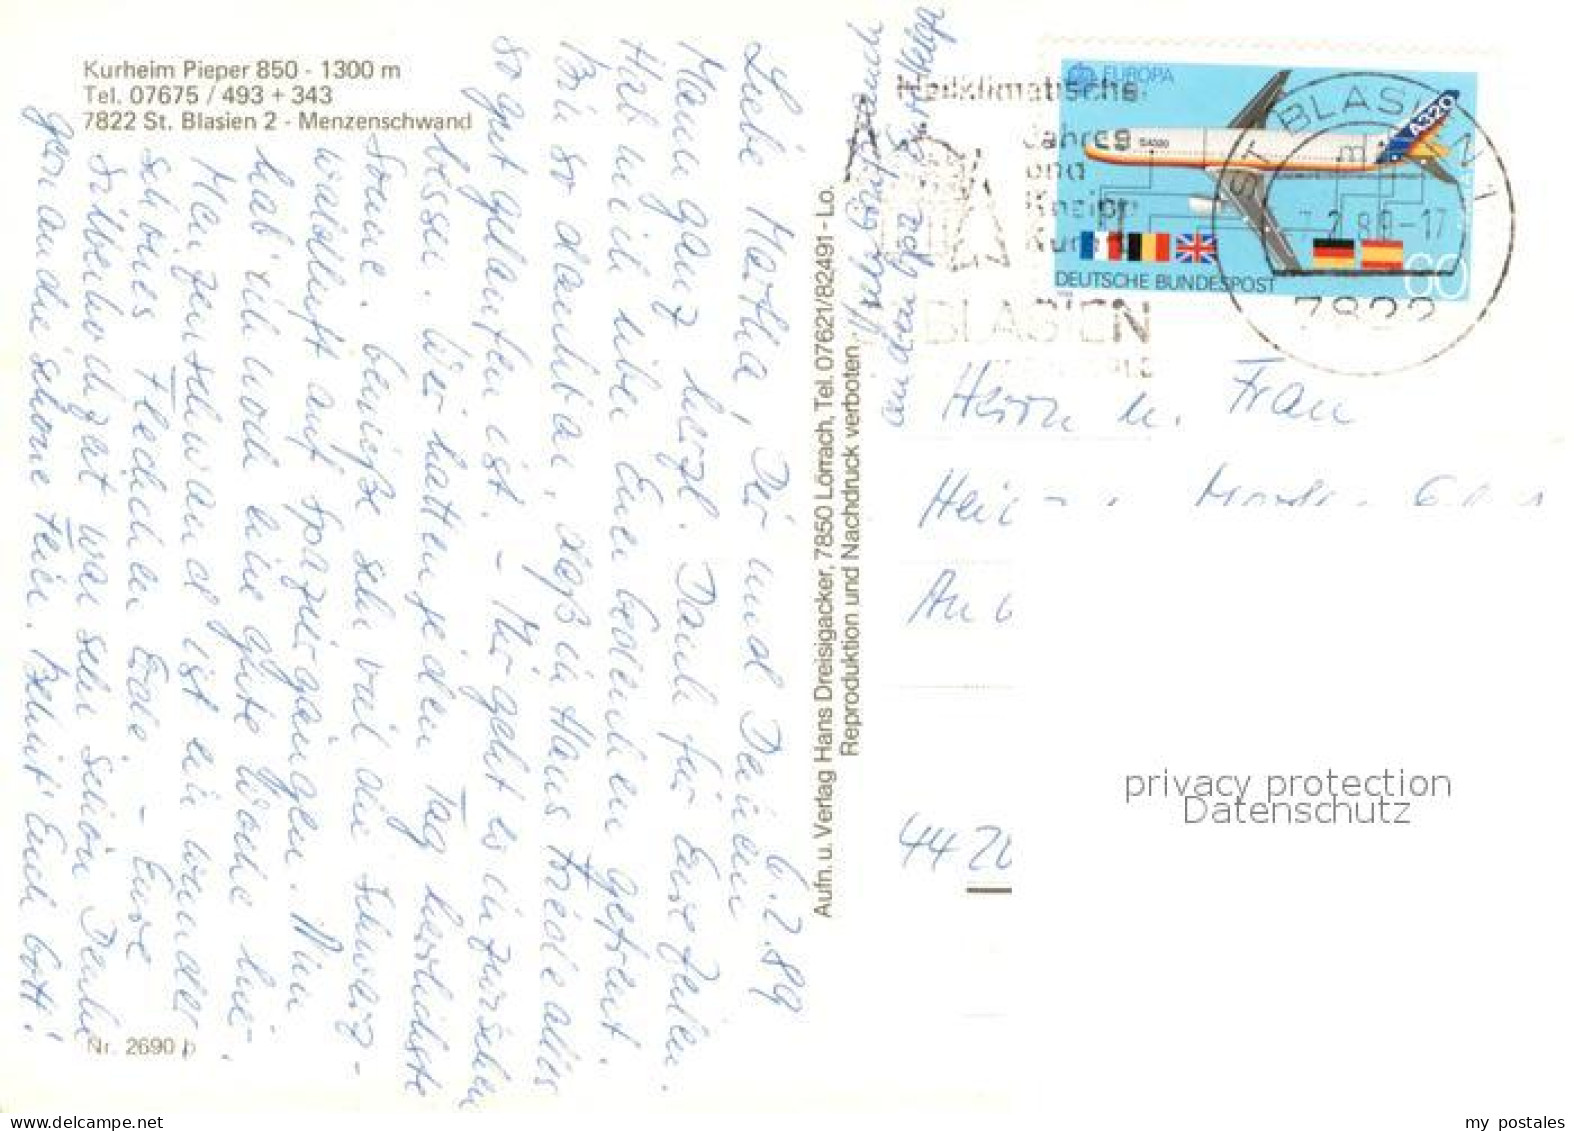 Kurheim Pieper 850 - 1300 m
Tel. 07675 / 493 + 343
7822 St. Blasien 2 - Menzenschwand
6.2.89
Liebe Martha, Dir und Deinem
Mann ganz herzl. Dank für Eure Zeilen.
Hab mich über Euer Gedenken gefreut.
Bin so dankbar, daß im Hause alles
so gut gelaufen ist. - Mir geht es inzwischen
bissen. Wir hatten jeden Tag herrlichste
Sonne, genieße sehr viel die Schwarz-
waldluft auf Spaziergängen. Nun
hab' ich noch eine gute Woche hier.
Menzenschwand ist ein wunder
schönes Fleckchen Erde. - Eure
Silberhochzeit war sehr schön. Denke
gern an die schöne Feier. Behüt Euch Gott!
Viele Grüße auch
an den
Nr. 2690 b
Aufn. u. Verlag Hans Dreisigacker, 7850 Lörrach, Tel. 07621/82491 - Lo.
Reproduktion und Nachdruck verboten
EUROPA
A320
DEUTSCHE BUNDESPOST
60
Heilklimatischer
Jahres
und
Kneipp
Kur
BLASIEN
ST BLASIEN 1
7822
Herrn u. Frau
44 20
privacy protection
Datenschutz
my postales